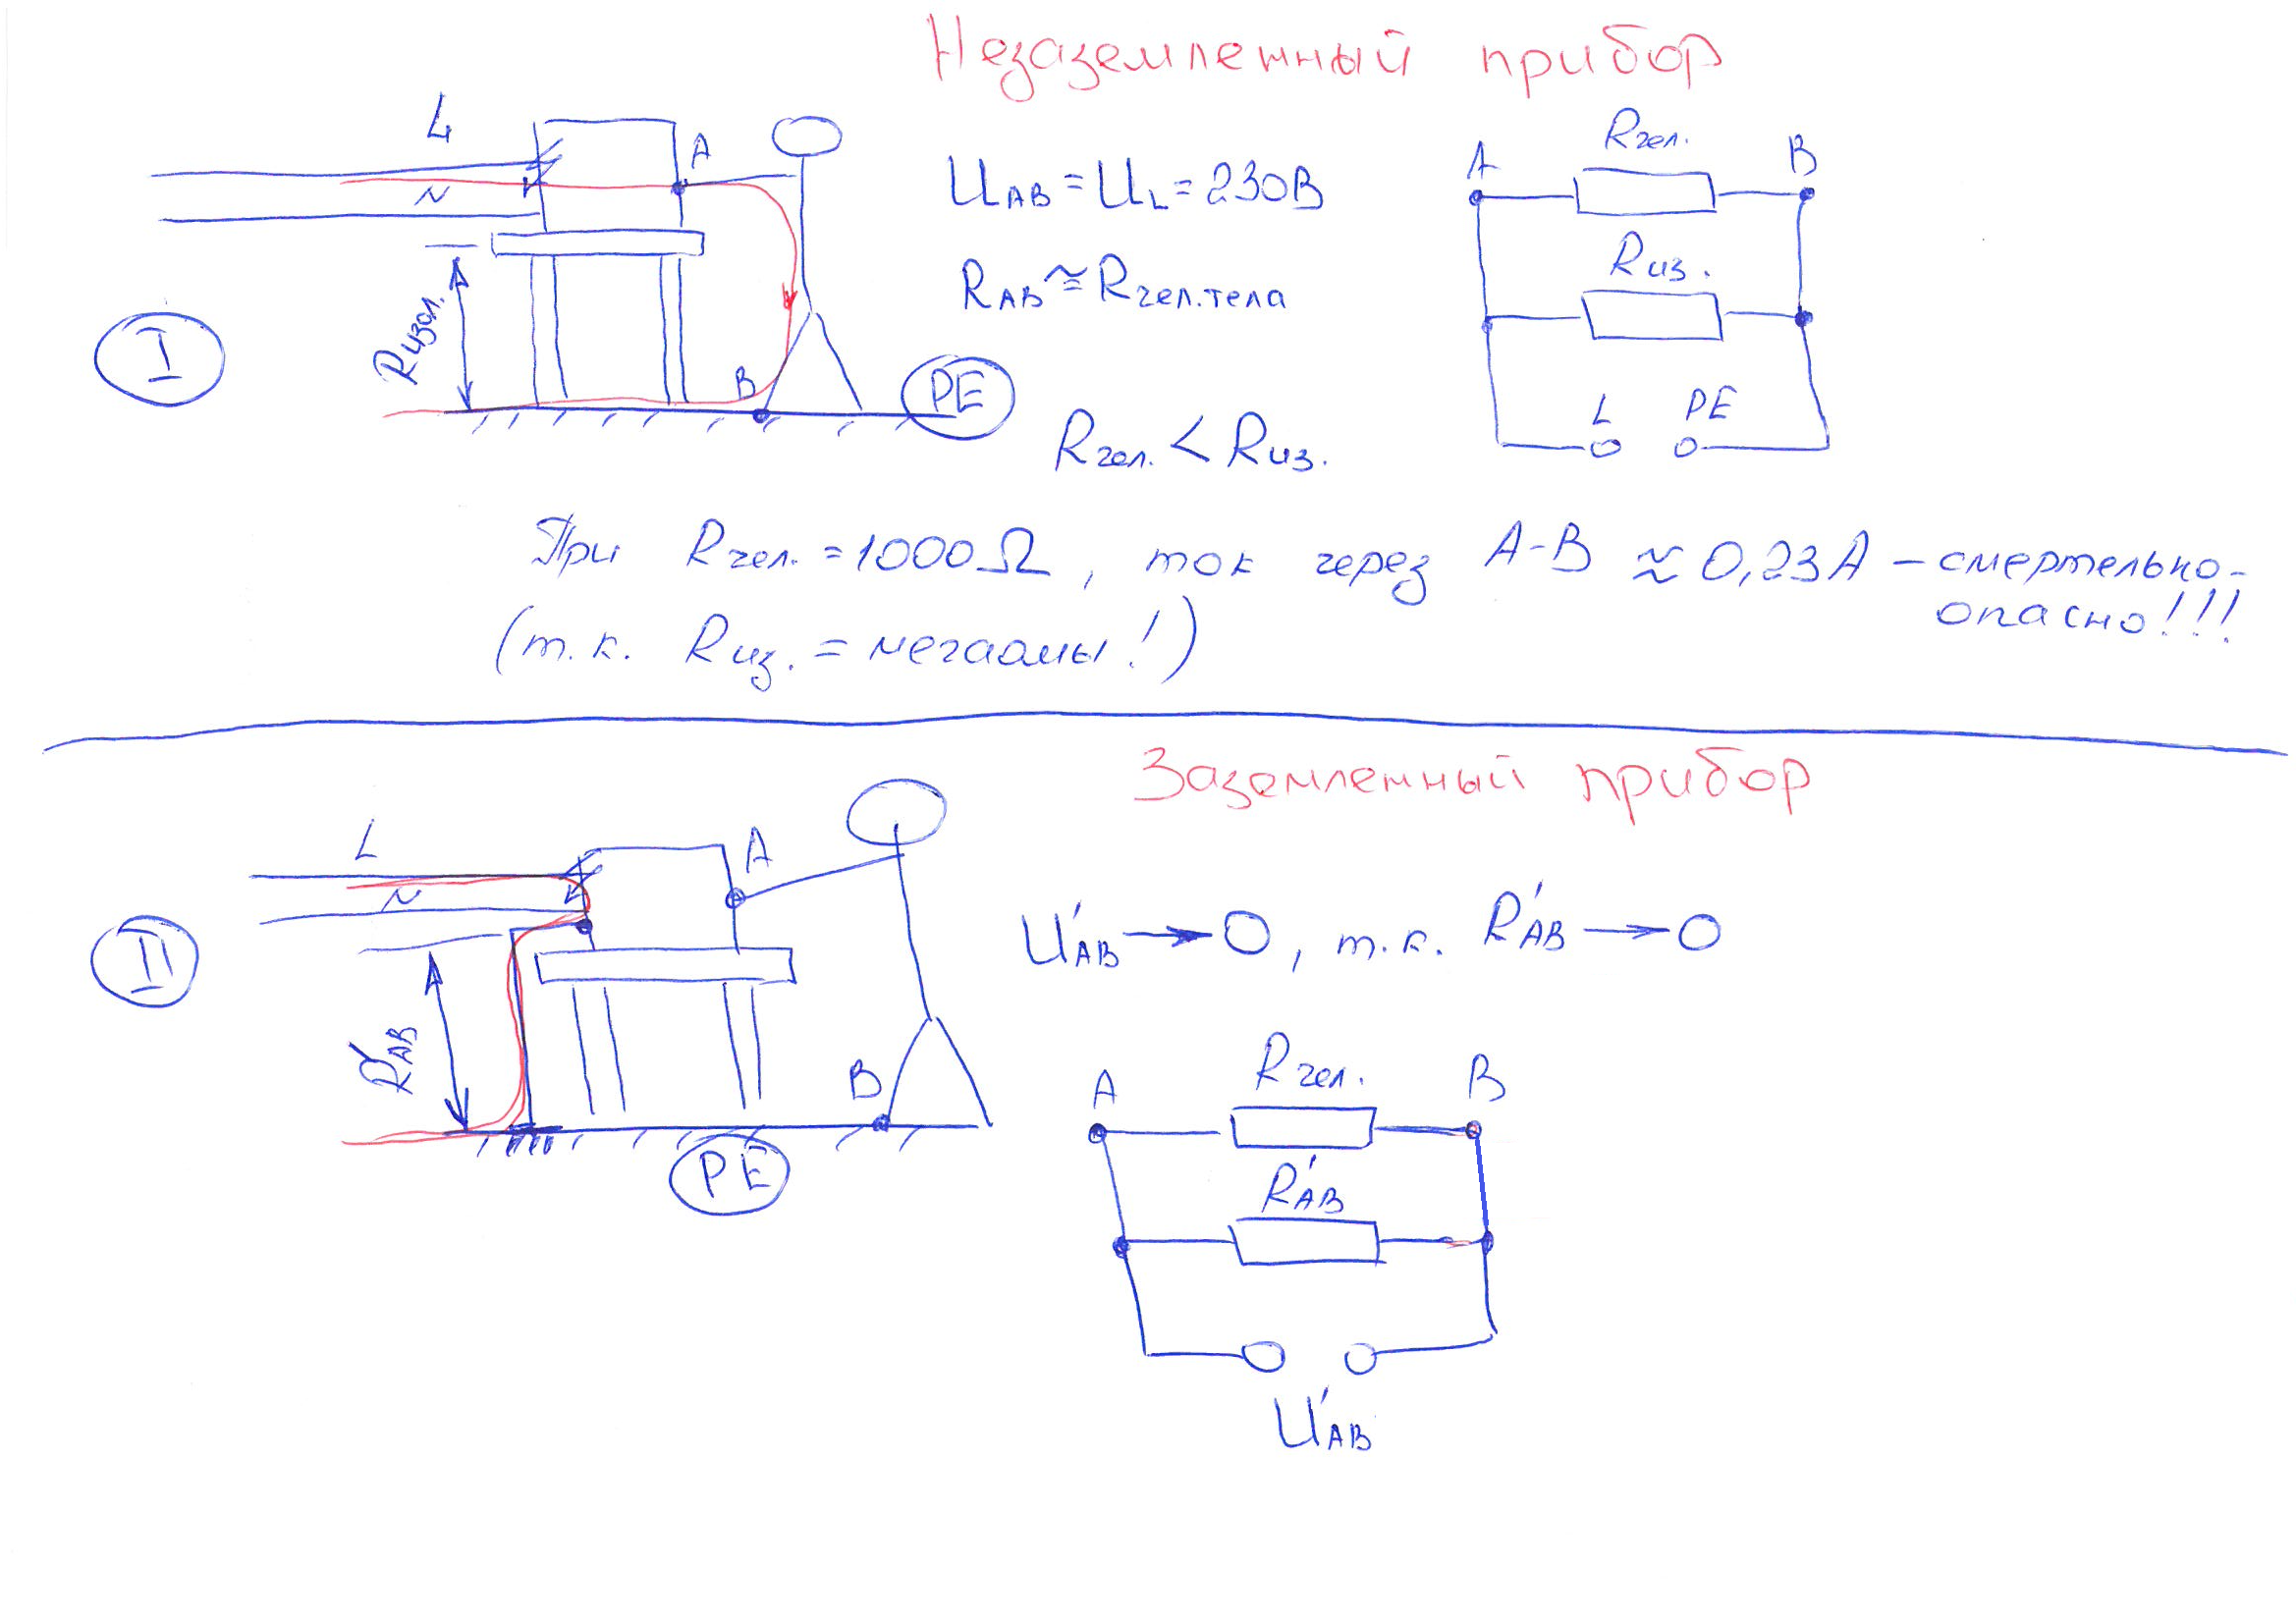 Незаземленный прибор
L
N
A
B
Rизол.
I
PE
UAB = UL = 230В
RAB ≅ Rчел.тела
Rчел. < Rиз.
A
Rчел.
B
Rиз.
L
PE
При Rчел. = 1000Ω, ток через A-B ≈ 0,23А – смертельно-
опасно!!!
(т.к. Rиз. = мегаомы!)
Заземленный прибор
L
N
A
B
R'AB
II
PE
U'AB → 0, т.к. R'AB → 0
A
Rчел.
B
R'AB
U'AB